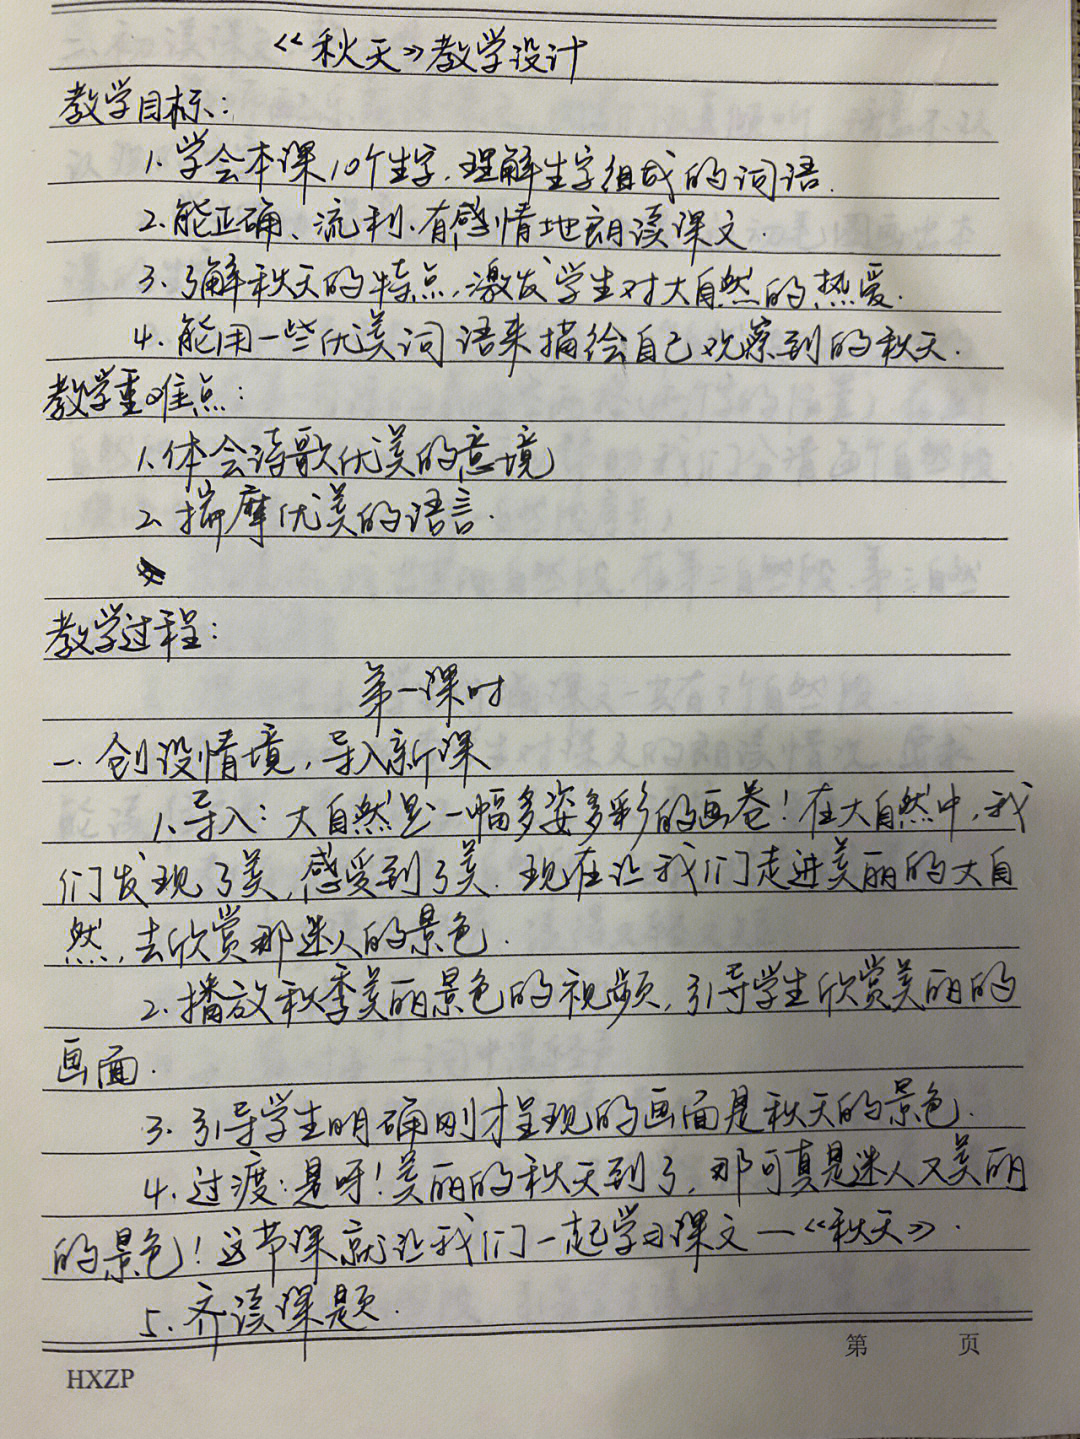 《秋天》教学设计
教学目标：
1. 学会本课10个生字，理解生字组成的词语.
2. 能正确、流利、有感情地朗读课文.
3. 了解秋天的特点，激发学生对大自然的热爱.
4. 能用一些优美词语来描绘自己观察到的秋天.
教学重难点：
1. 体会诗歌优美的意境
2. 揣摩优美的语言.
教学过程：
第一课时
一. 创设情境，导入新课
1. 导入：大自然是一幅多姿多彩的画卷！在大自然中，我
们发现了美，感受到了美. 现在让我们走进美丽的大自
然，去欣赏那迷人的景色.
2. 播放秋季美丽景色的视频，引导学生欣赏美丽的
画面.
3. 引导学生明确刚才呈现的画面是秋天的景色.
4. 过渡：是呀！美丽的秋天到了，那可真是迷人又美丽
的景色！这节课就让我们一起学习课文—《秋天》.
5. 齐读课题.
第 页
HXZP